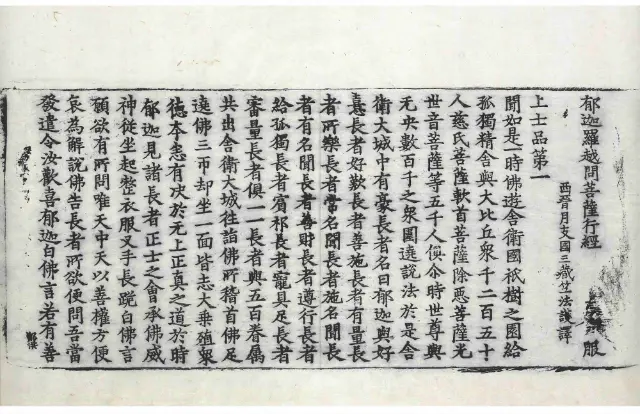 郁迦羅越問菩薩行經 服
西晉月支國三藏竺法護譯
上士品第一
聞如是一時佛遊舍衛國祇樹之園給
孤獨精舍與大比丘衆千二百五十
人慈氏菩薩軟首菩薩除惡菩薩光
世音菩薩等五千人俱尒時世尊與
无央數百千之衆圍遶說法於是舍
衛大城中有豪長者名曰郁迦與好
憙長者好歎長者善施長者有量長
者所樂長者當名聞長者施名聞長
者有名聞長者善財長者遵行長者
給孤獨長者賓祁長者寵具足長者
審量長者俱一一長者與五百眷屬
共出舍衛大城往詣佛所稽首佛足
遶佛三帀却坐一面皆志大乘殖衆
德本悉有决於无上正真之道於時
郁迦見諸長者正士之會承佛威
神從坐起整衣服叉手長跪白佛言
願欲有所問唯天中天以善權方便
哀為解說佛告長者所欲便問吾當
發遣令汝歡喜郁迦白佛言若有善